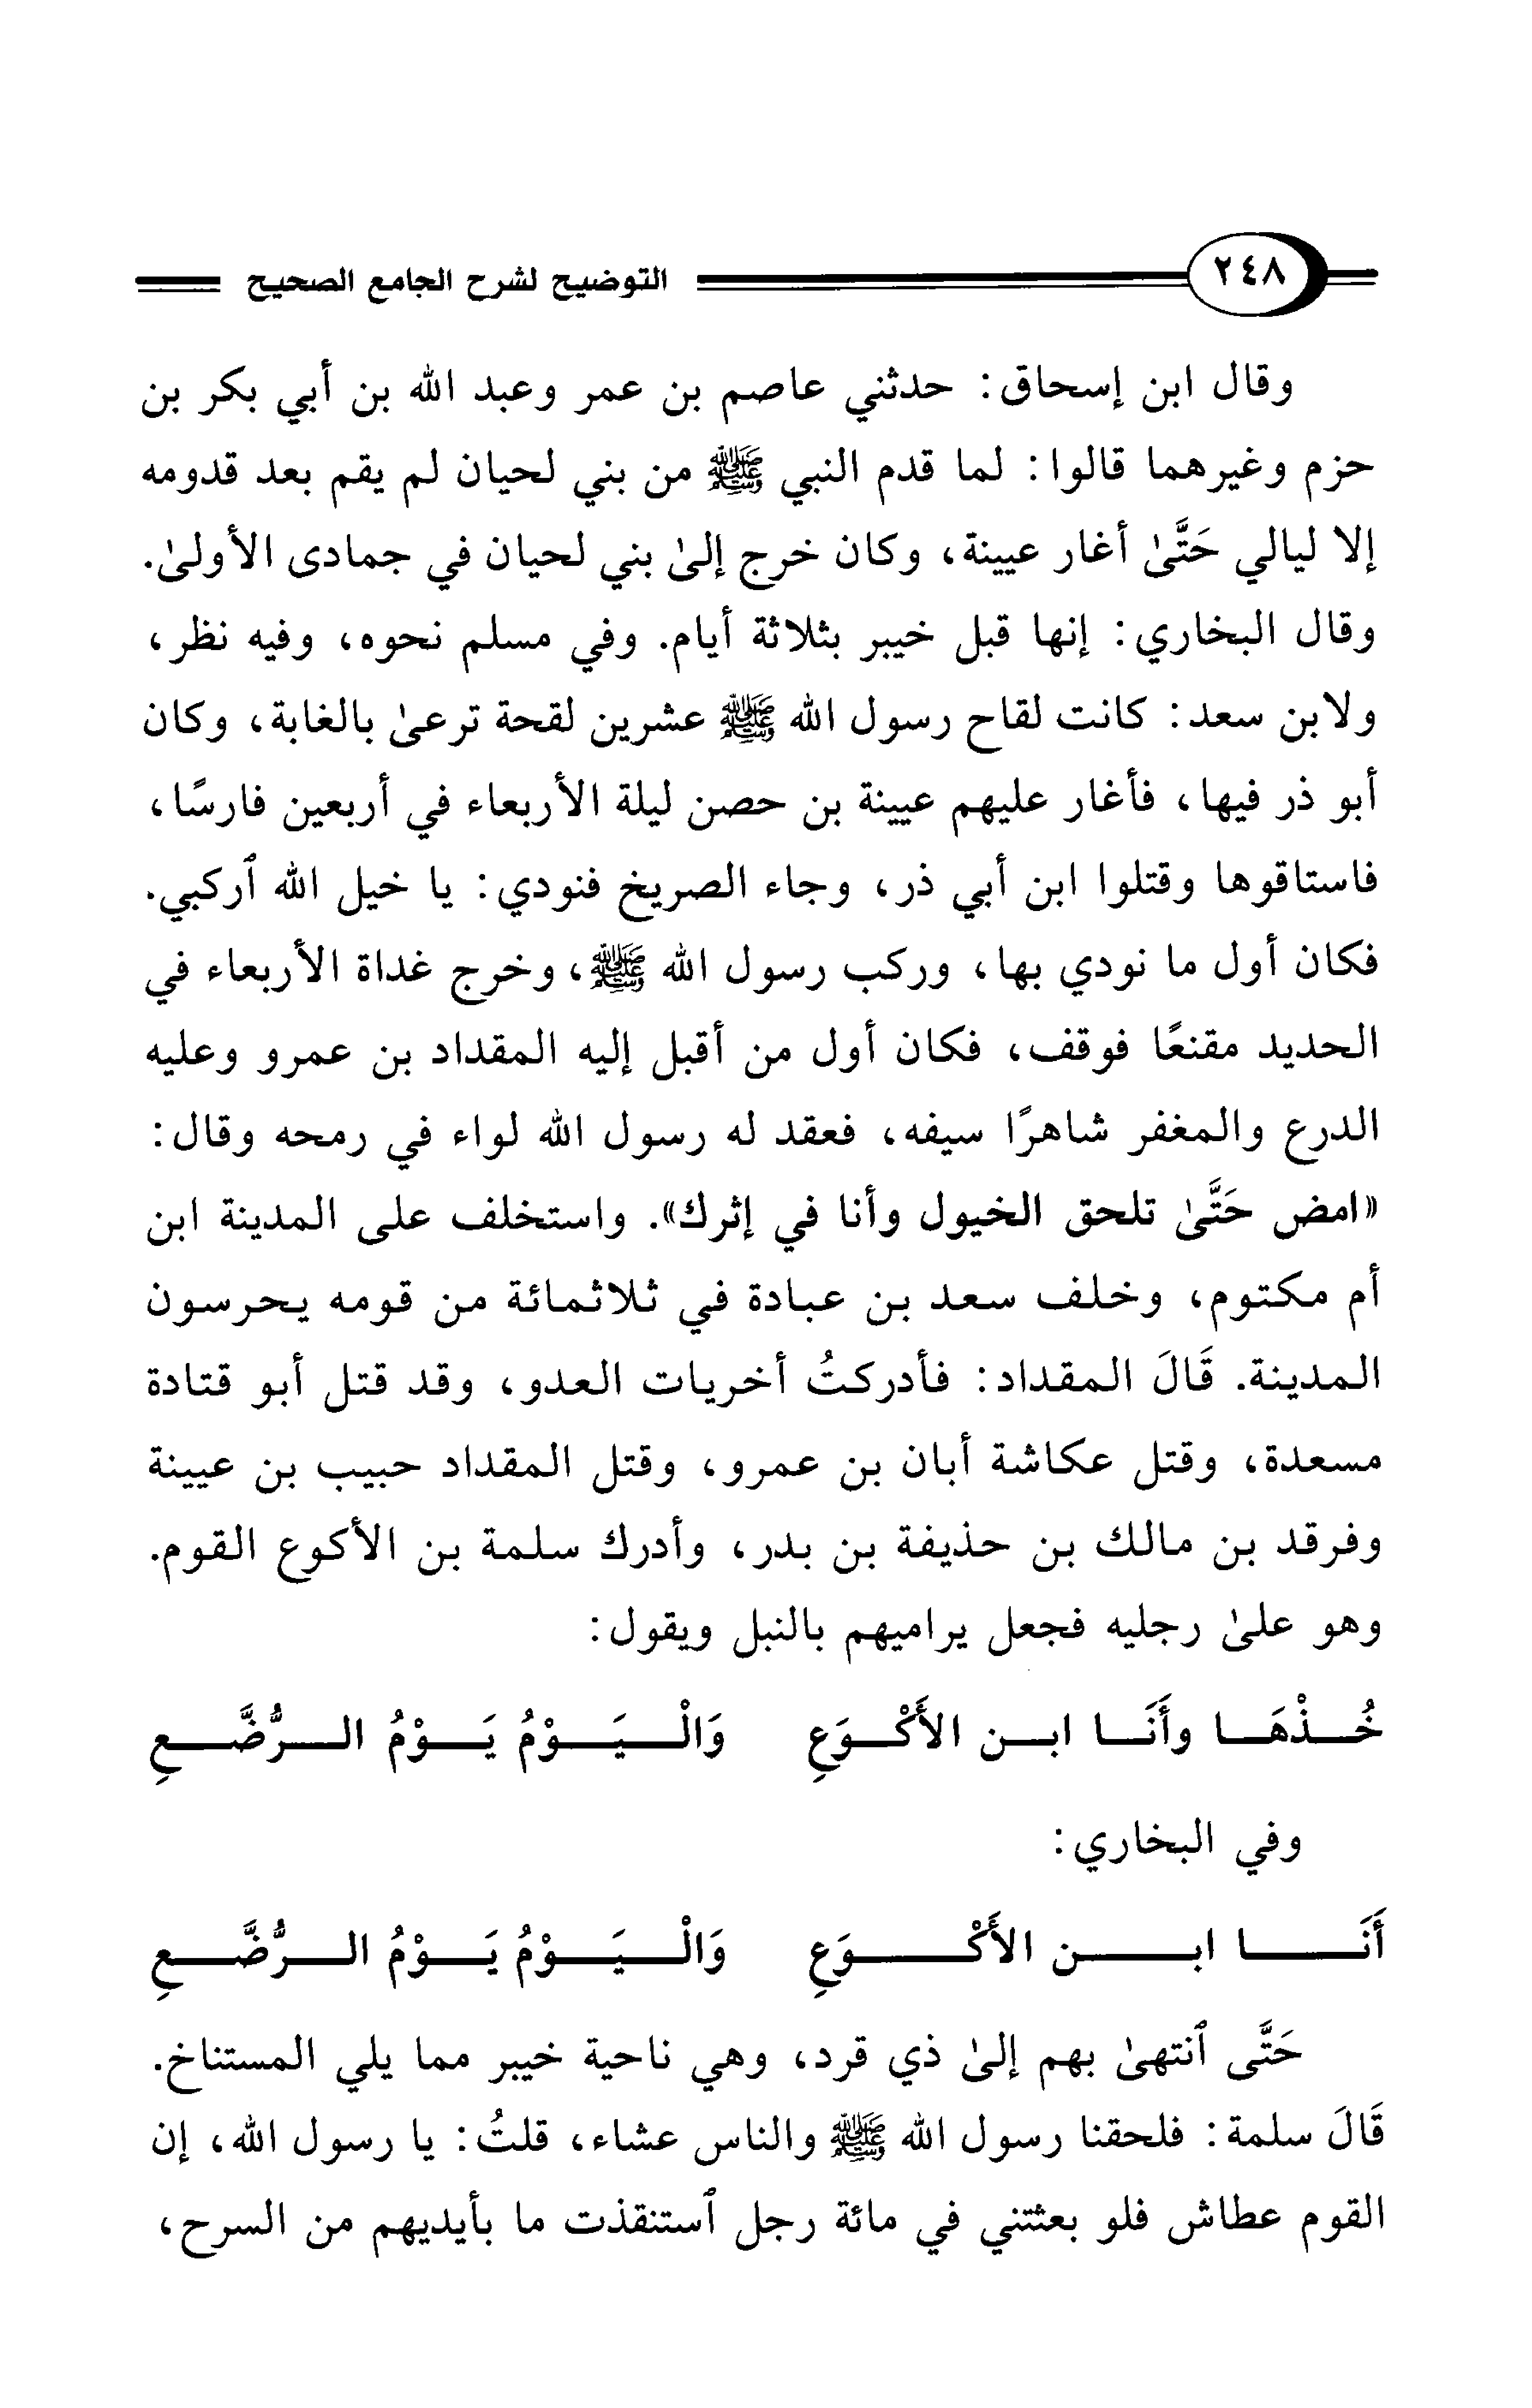 ٢٤٨ التوضيح لشرح الجامع الصحيح
وقال ابن إسحاق: حدثني عاصم بن عمر وعبد الله بن أبي بكر بن
حزم وغيرهما قالوا: لما قدم النبي ﷺ من بني لحيان لم يقم بعد قدومه
إلا ليالي حَتَّىٰ أغار عيينة، وكان خرج إلىٰ بني لحيان في جمادى الأولىٰ.
وقال البخاري: إنها قبل خيبر بثلاثة أيام. وفي مسلم نحوه، وفيه نظر،
ولابن سعد: كانت لقاح رسول الله ﷺ عشرين لقحة ترعىٰ بالغابة، وكان
أبو ذر فيها، فأغار عليهم عيينة بن حصن ليلة الأربعاء في أربعين فارسًا،
فاستاقوها وقتلوا ابن أبي ذر، وجاء الصريخ فنودي: يا خيل الله ٱركبي.
فكان أول ما نودي بها، وركب رسول الله ﷺ، وخرج غداة الأربعاء في
الحديد مقنعًا فوقف، فكان أول من أقبل إليه المقداد بن عمرو وعليه
الدرع والمغفر شاهرًا سيفه، فعقد له رسول الله لواء في رمحه وقال:
«امض حَتَّىٰ تلحق الخيول وأنا في إثرك». واستخلف على المدينة ابن
أم مكتوم، وخلف سعد بن عبادة في ثلاثمائة من قومه يحرسون
المدينة. قَالَ المقداد: فأدركتُ أخريات العدو، وقد قتل أبو قتادة
مسعدة، وقتل عكاشة أبان بن عمرو، وقتل المقداد حبيب بن عيينة
وفرقد بن مالك بن حذيفة بن بدر، وأدرك سلمة بن الأكوع القوم.
وهو علىٰ رجليه فجعل يراميهم بالنبل ويقول:
خُذْهَا وأَنَا ابن الأَكْوَعِ وَالْيَوْمُ يَوْمُ الرُّضَّعِ
وفي البخاري:
أَنَا ابن الأَكْوَعِ وَالْيَوْمُ يَوْمُ الرُّضَّعِ
حَتَّى ٱنتهىٰ بهم إلىٰ ذي قرد، وهي ناحية خيبر مما يلي المستناخ.
قَالَ سلمة: فلحقنا رسول الله ﷺ والناس عشاء، قلتُ: يا رسول الله، إن
القوم عطاش فلو بعثتني في مائة رجل ٱستنقذت ما بأيديهم من السرح،